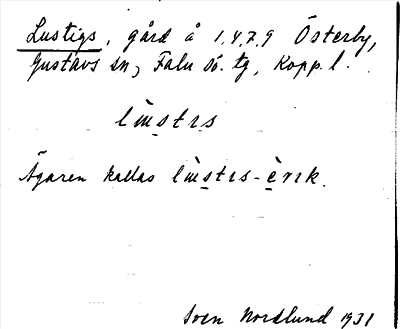 Lustigs, gård å 1.4.7.9 Österby,
Gustavs sn, Falu sö. tg, Kopp. l.
Ägaren kallas
Sven Nordlund 1931